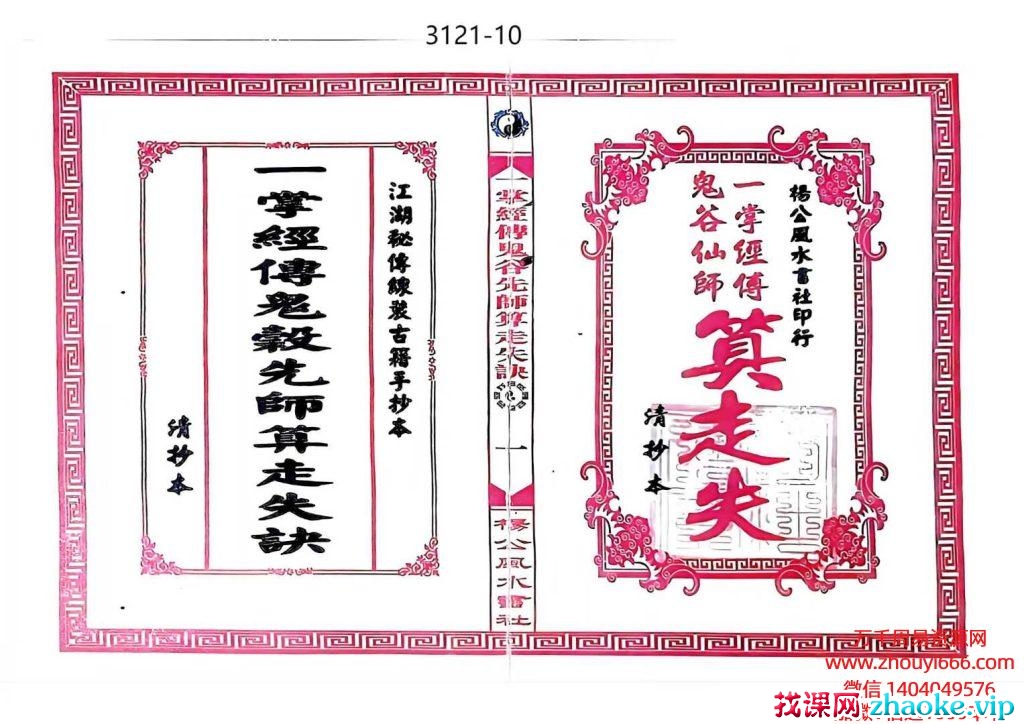 3121-10
楊公風水書社印行
一掌經傳
鬼谷仙師
算走失
清抄本
一掌經傳鬼谷先師算走失訣
一
楊公風水書社
江湖秘傳線裝古籍手抄本
一掌經傳鬼穀先師算走失訣
清抄本
www.zhouyi666.com
微信 1404049576
找课网 zhaoke.vip